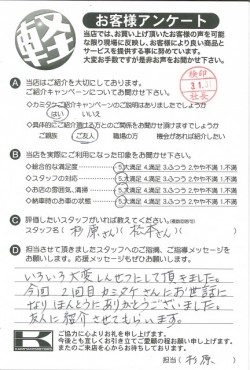 軽
お客様アンケート
当店では、お買い上げ頂いたお客様の声を可能
な限り現場に反映し、お客様により良い商品と
サービスを提供する事に努めています。
大変お手数ですが是非お声をお聞かせ下さい。
検印
社長
A 当店はご紹介を大切にしております。
ご紹介キャンペーンについてお聞かせ下さい。
◇カミタケご紹介キャンペーンのご説明はありましたでしょうか
はい いいえ
◇具体的にご紹介頂ける方とのご関係をお聞かせ下さいますでしょうか
ご親族 ご友人 職場の方 機会があれば紹介したい
B 当店を実際にご利用になった印象をお聞かせ下さい。
◇総合的な満足度 5.大満足 4.満足 3.ふつう 2.やや不満 1.不満
◇スタッフの対応 5.大満足 4.満足 3.ふつう 2.やや不満 1.不満
◇お店の雰囲気、清掃 5.大満足 4.満足 3.ふつう 2.やや不満 1.不満
◇納車時のお車の状態 5.大満足 4.満足 3.ふつう 2.やや不満 1.不満
C 評価したいスタッフがいれば教えてください。(複数回答可)
スタッフ名( 杉原さん)( 松本さん )
D 担当させて頂きましたスタッフへのご指摘、ご指導メッセージを
お願いします。応援メッセージもぜひお願いします。
いろいろ大変しんせつにして頂きました。
今回2回目カミタケさんにお世話に
なりほんとうにありがとうございました。
友人に紹介させてもらいます。
K
ご協力に心よりお礼を申し上げます。
今後とも宜しくお引き立てご愛顧の程お願い申し上げます。
またのご来店を心からお待ちしております。
担当( 杉原 )